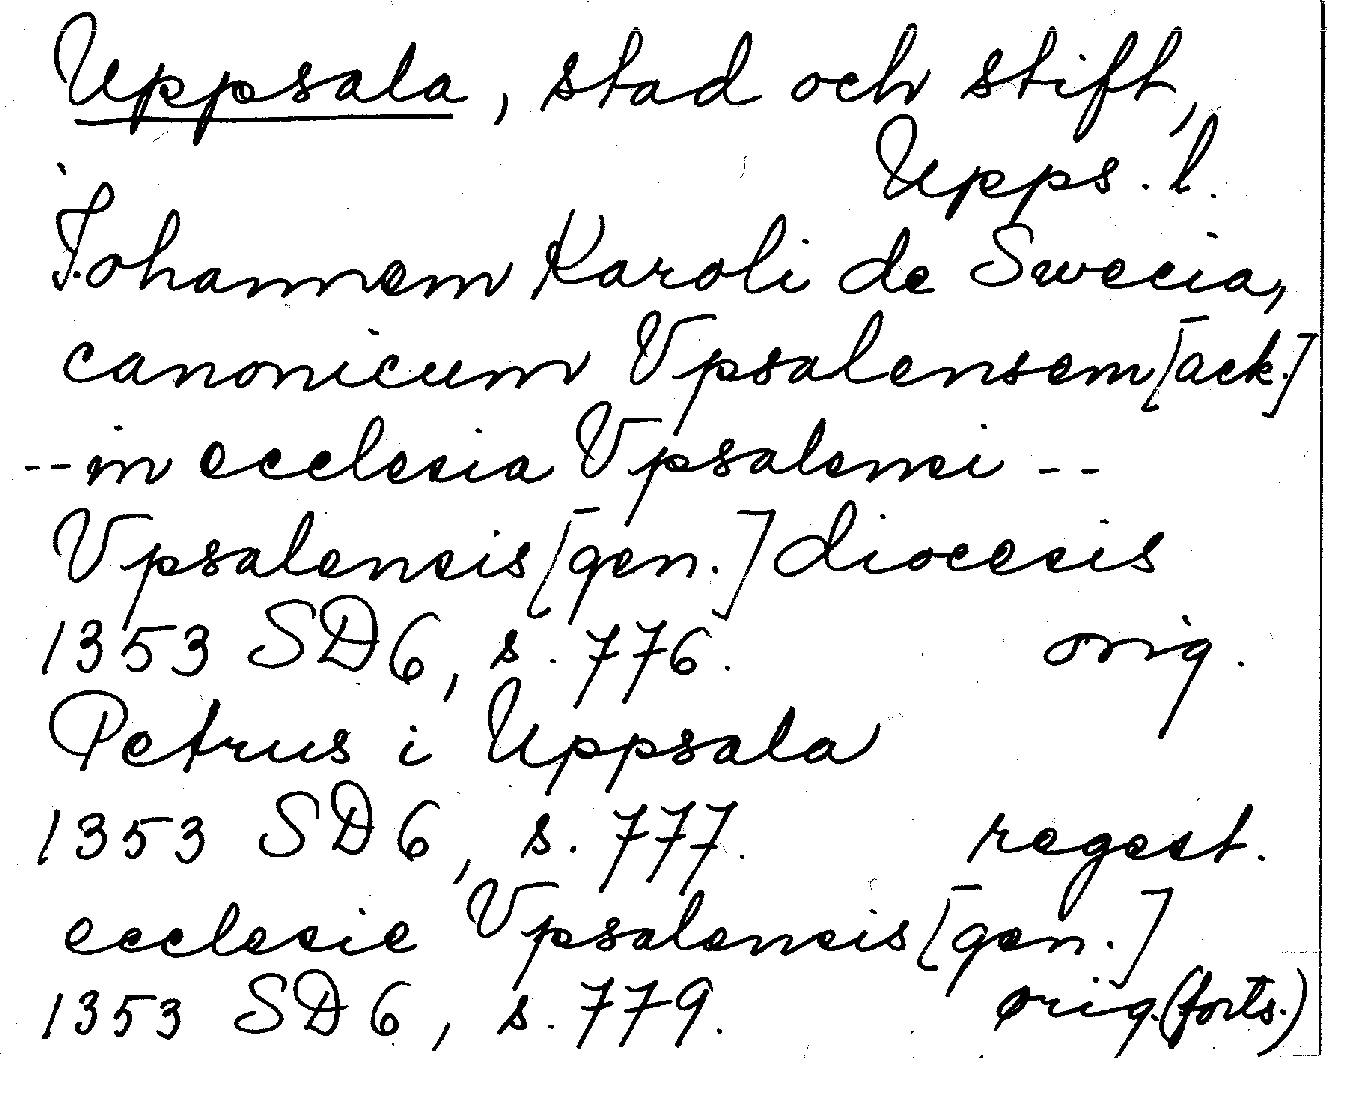 Uppsala, stad och stift,
Upps. l.
Johannem Karoli de Swecia,
canonicum Vpsalensem [ack.]
-- in ecclesia Vpsalensi --
Vpsalensis [gen.] diocesis
1353 SD 6, s. 776. orig.
Petrus i Uppsala
1353 SD 6, s. 777. regest.
ecclesie Vpsalensis [gen.]
1353 SD 6, s. 779. orig. (forts.)